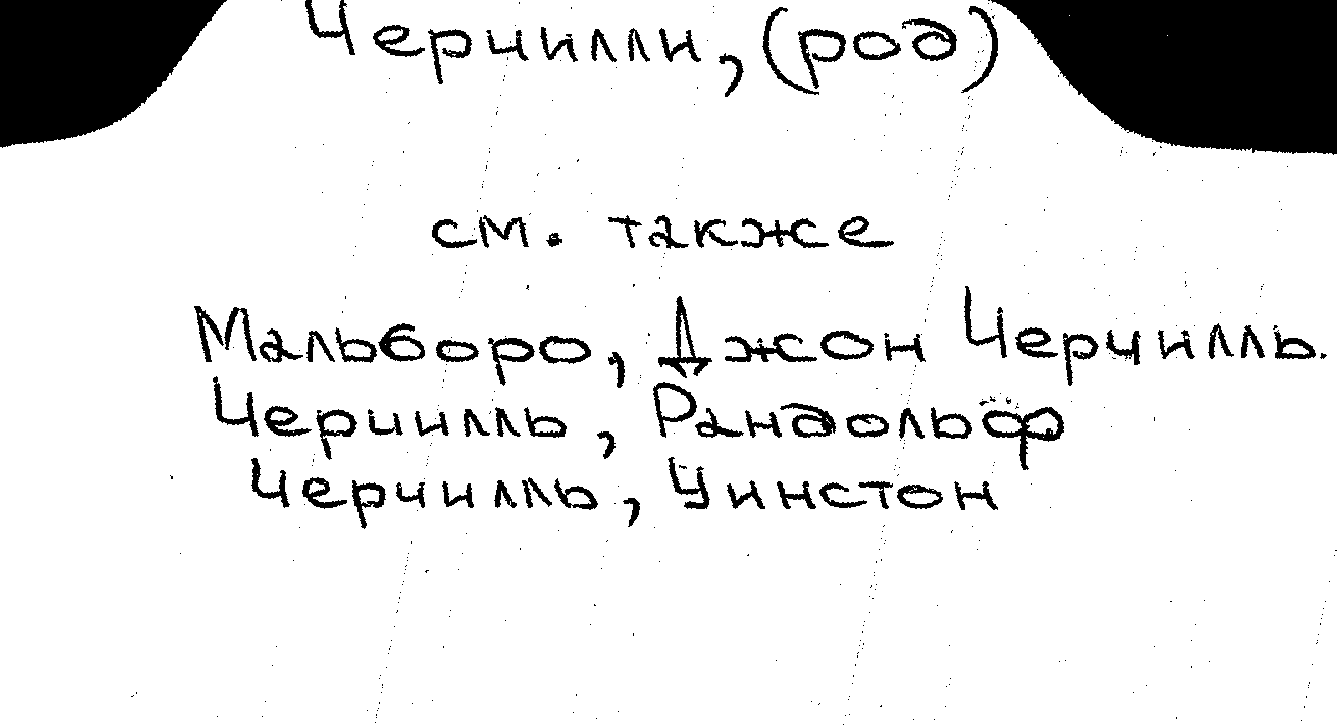 Черчилли, (род)
см. также
Мальборо, Джон Черчилль.
Черчилль, Рандольф
Черчилль, Уинстон